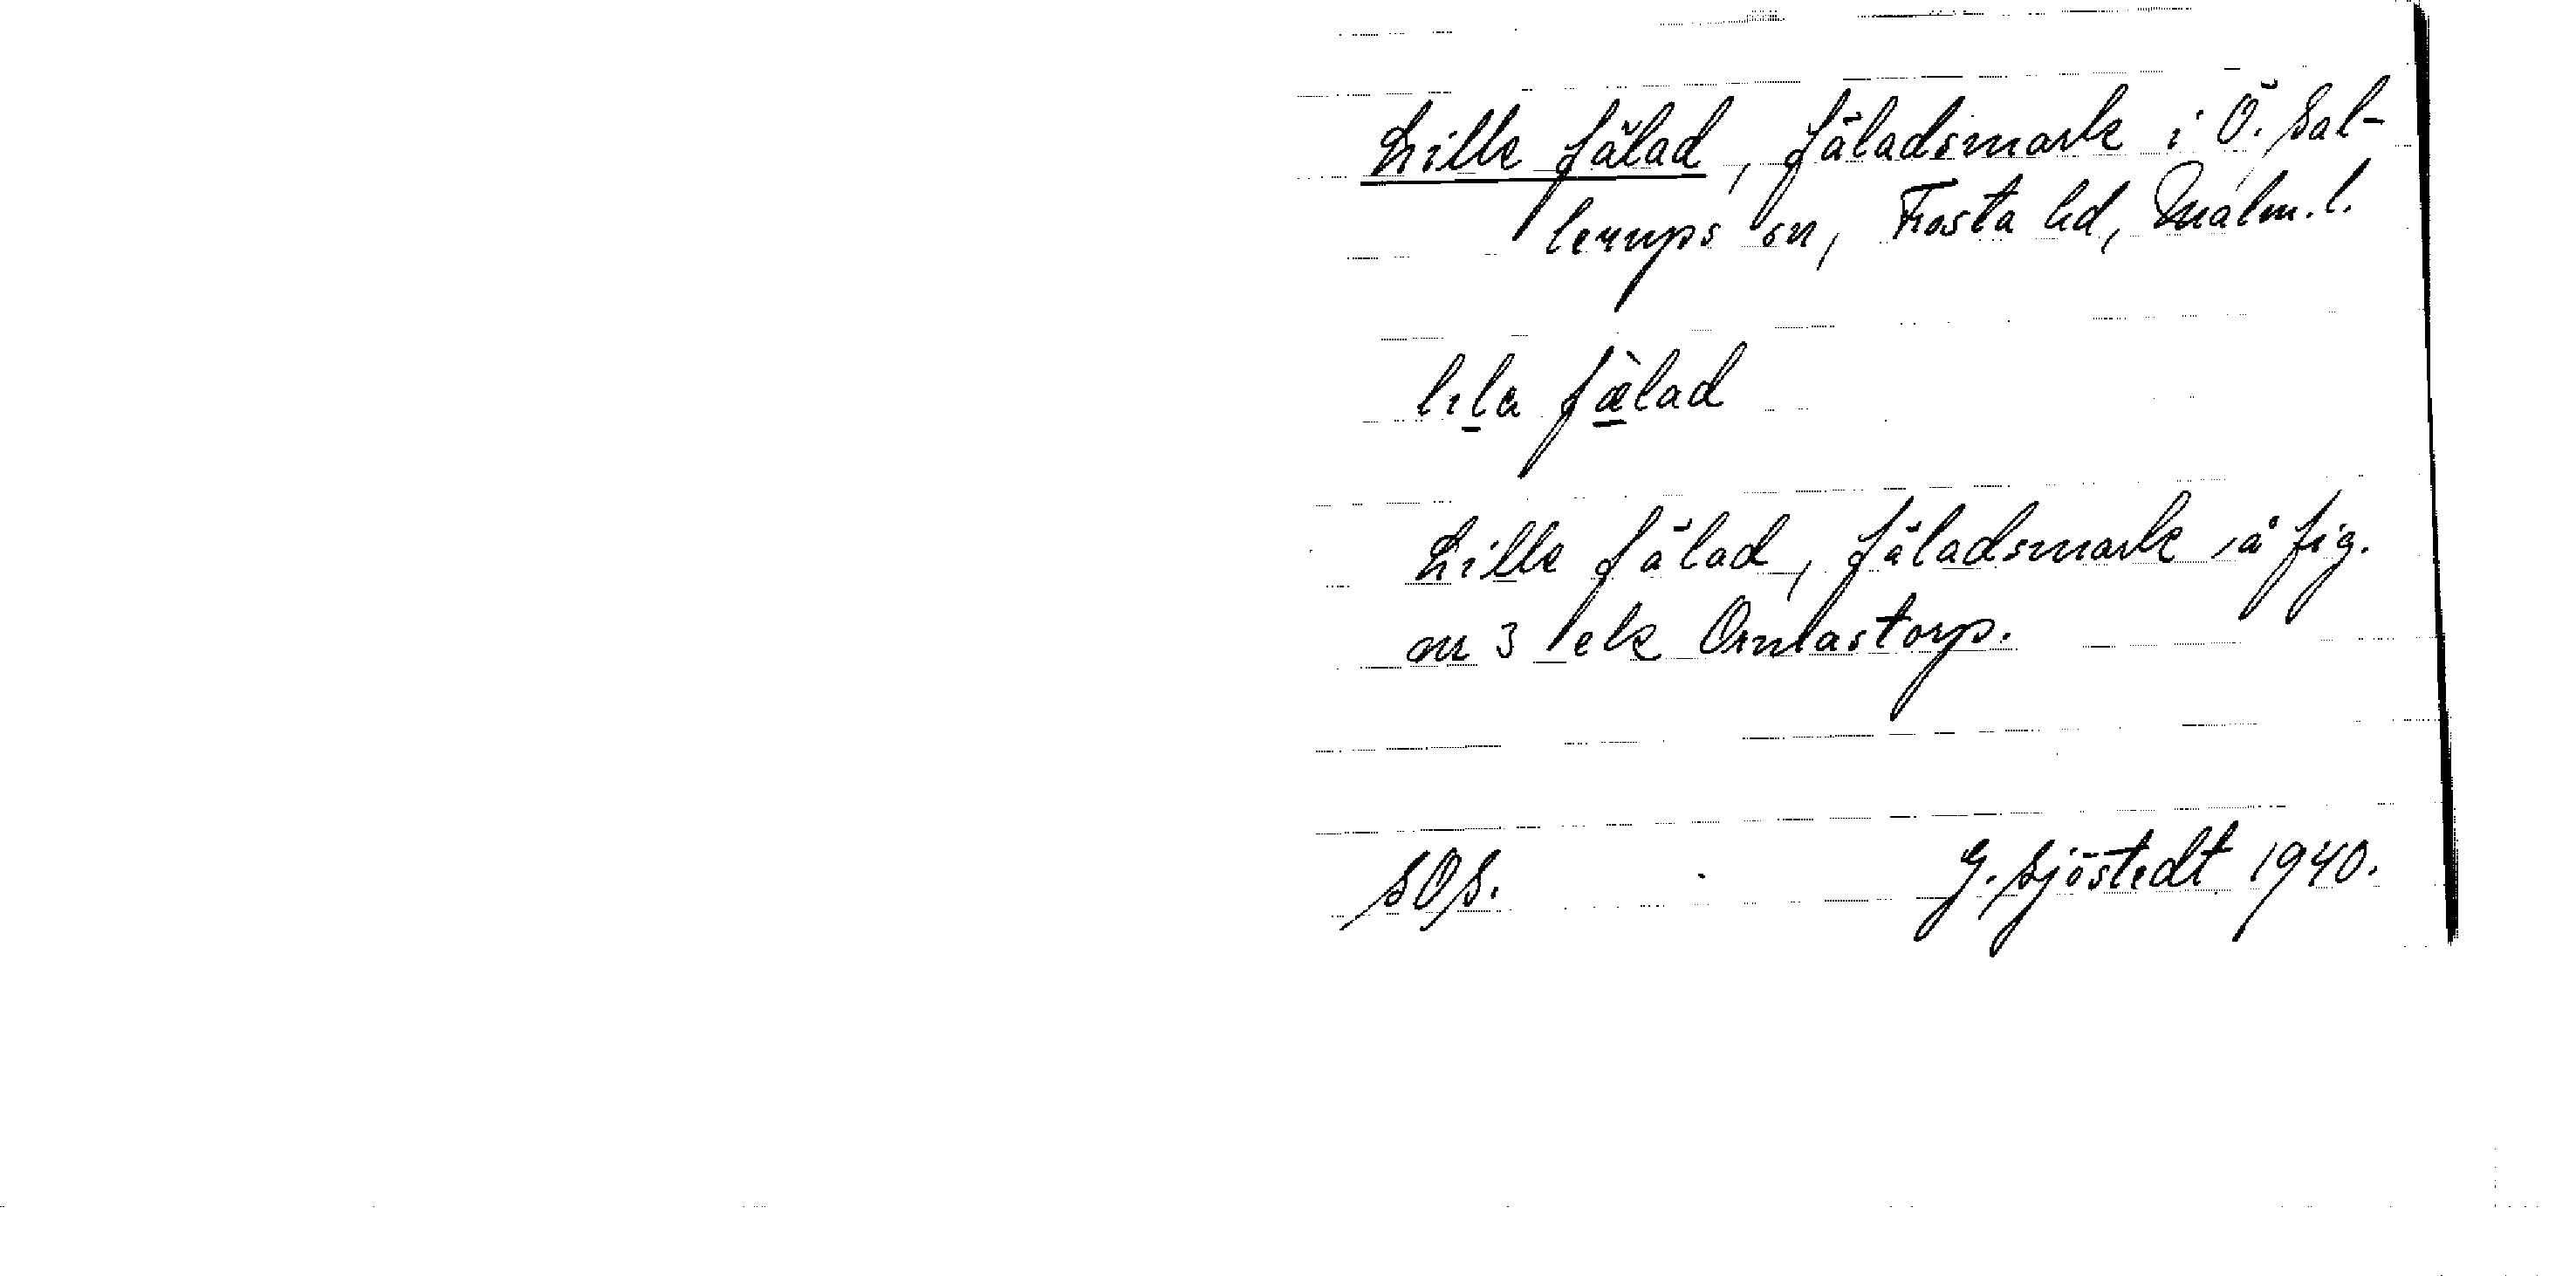 Lille fälad, fäladsmark i Ö. Sal-
lerups sn, Frosta hd, Malm. l.
lila fàlad
Lille fälad, fäladsmark på fig.
nr 3 ek Ormastorp.
SOS. G. Sjöstedt 1940.